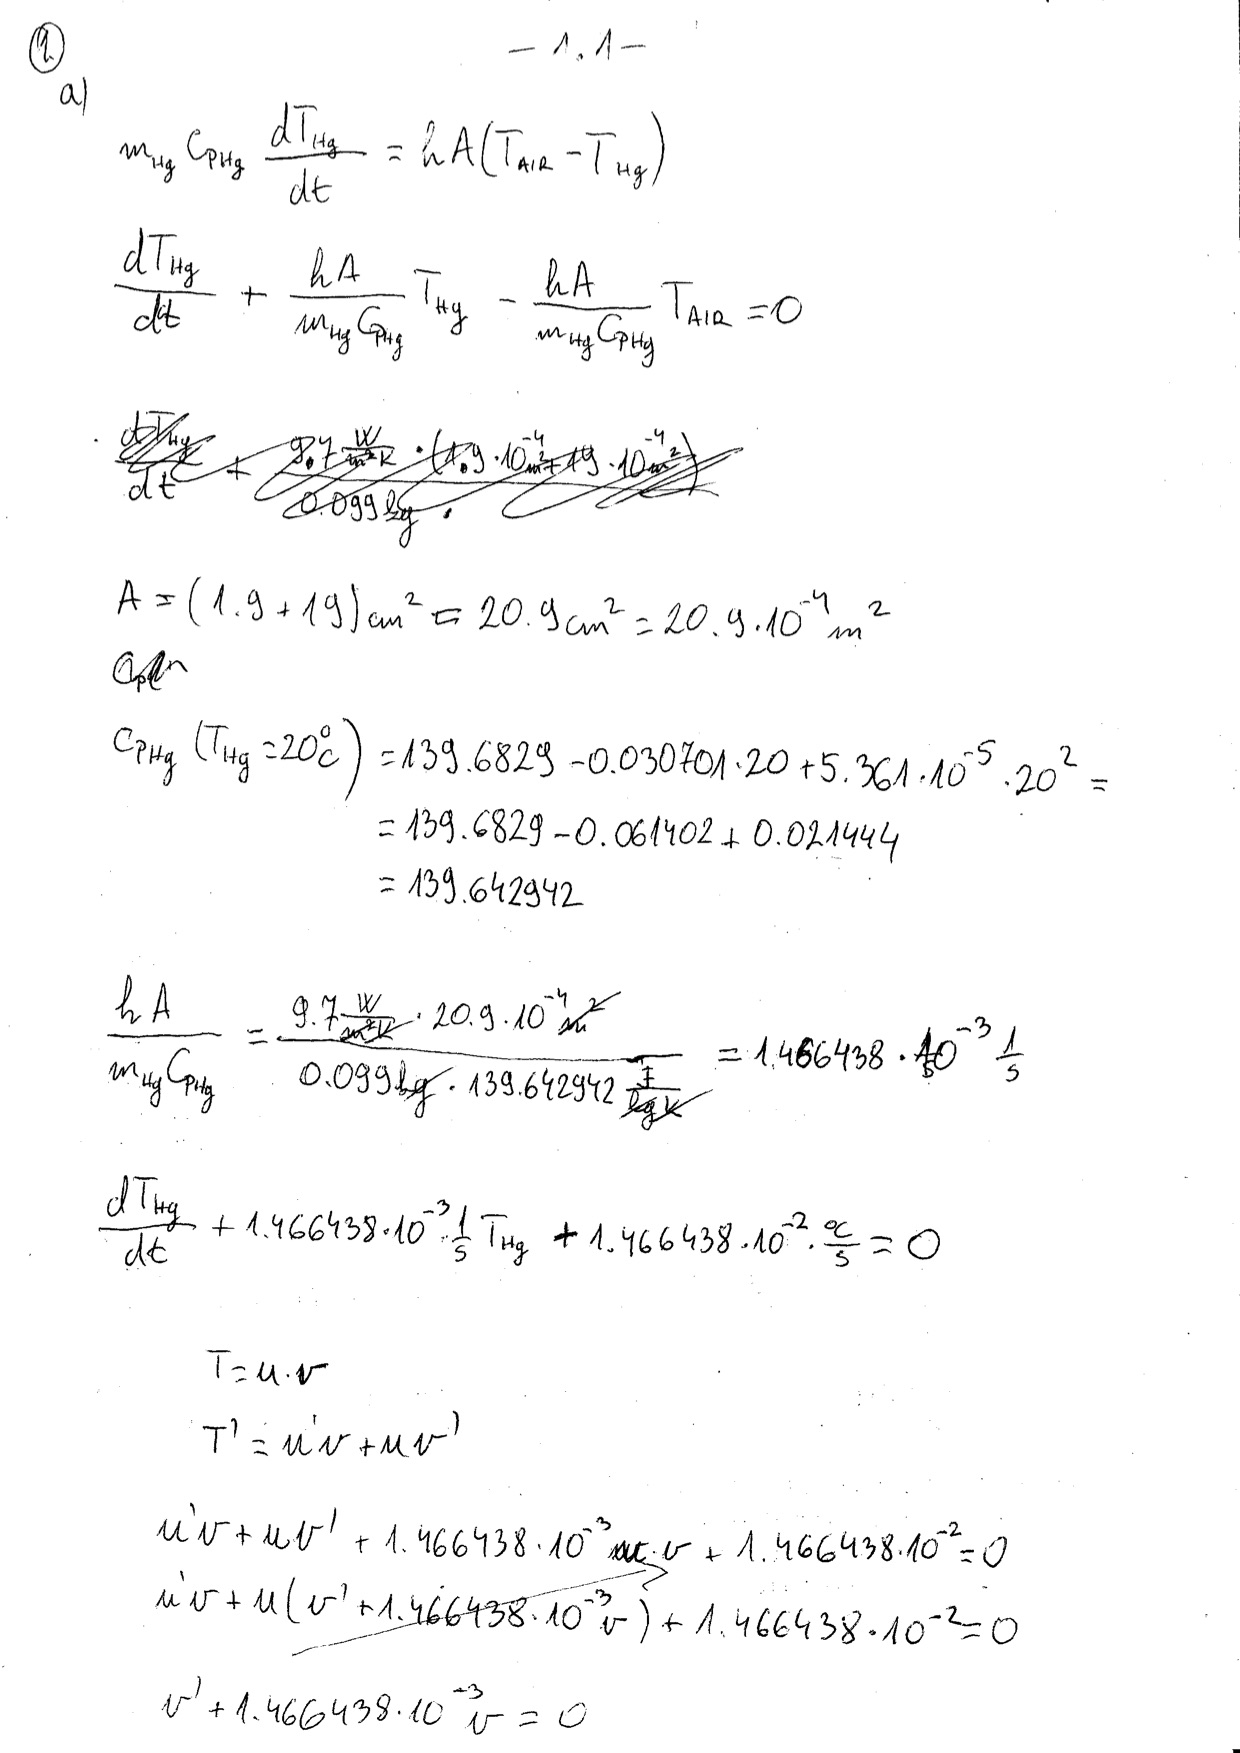 1.
- 1.1 -
a)
m_Hg C_PHg dT_Hg/dt = hA(T_AIR - T_Hg)
dT_Hg/dt + hA/(m_Hg C_PHg) T_Hg - hA/(m_Hg C_PHg) T_AIR = 0
dT_Hg/dt + 9.7 W/m²K · (1.9·10⁻⁴ m² + 19·10⁻⁴ m²) / 0.099 kg ·
A = (1.9 + 19) cm² = 20.9 cm² = 20.9·10⁻⁴ m²
C_PHg (T_Hg = 20°C) = 139.6829 - 0.030701·20 + 5.361·10⁻⁵·20² =
= 139.6829 - 0.061402 + 0.021444
= 139.642942
hA/(m_Hg C_PHg) = (9.7 W/m²K · 20.9·10⁻⁴ m²)/(0.099 kg · 139.642942 J/kgK) = 1.466438·10⁻³ 1/s
dT_Hg/dt + 1.466438·10⁻³ · 1/s T_Hg + 1.466438·10⁻² · °C/s = 0
T = u·v
T' = u'v + uv'
u'v + uv' + 1.466438·10⁻³ u·v + 1.466438·10⁻² = 0
u'v + u(v' + 1.466438·10⁻³ v) + 1.466438·10⁻² = 0
v' + 1.466438·10⁻³ v = 0